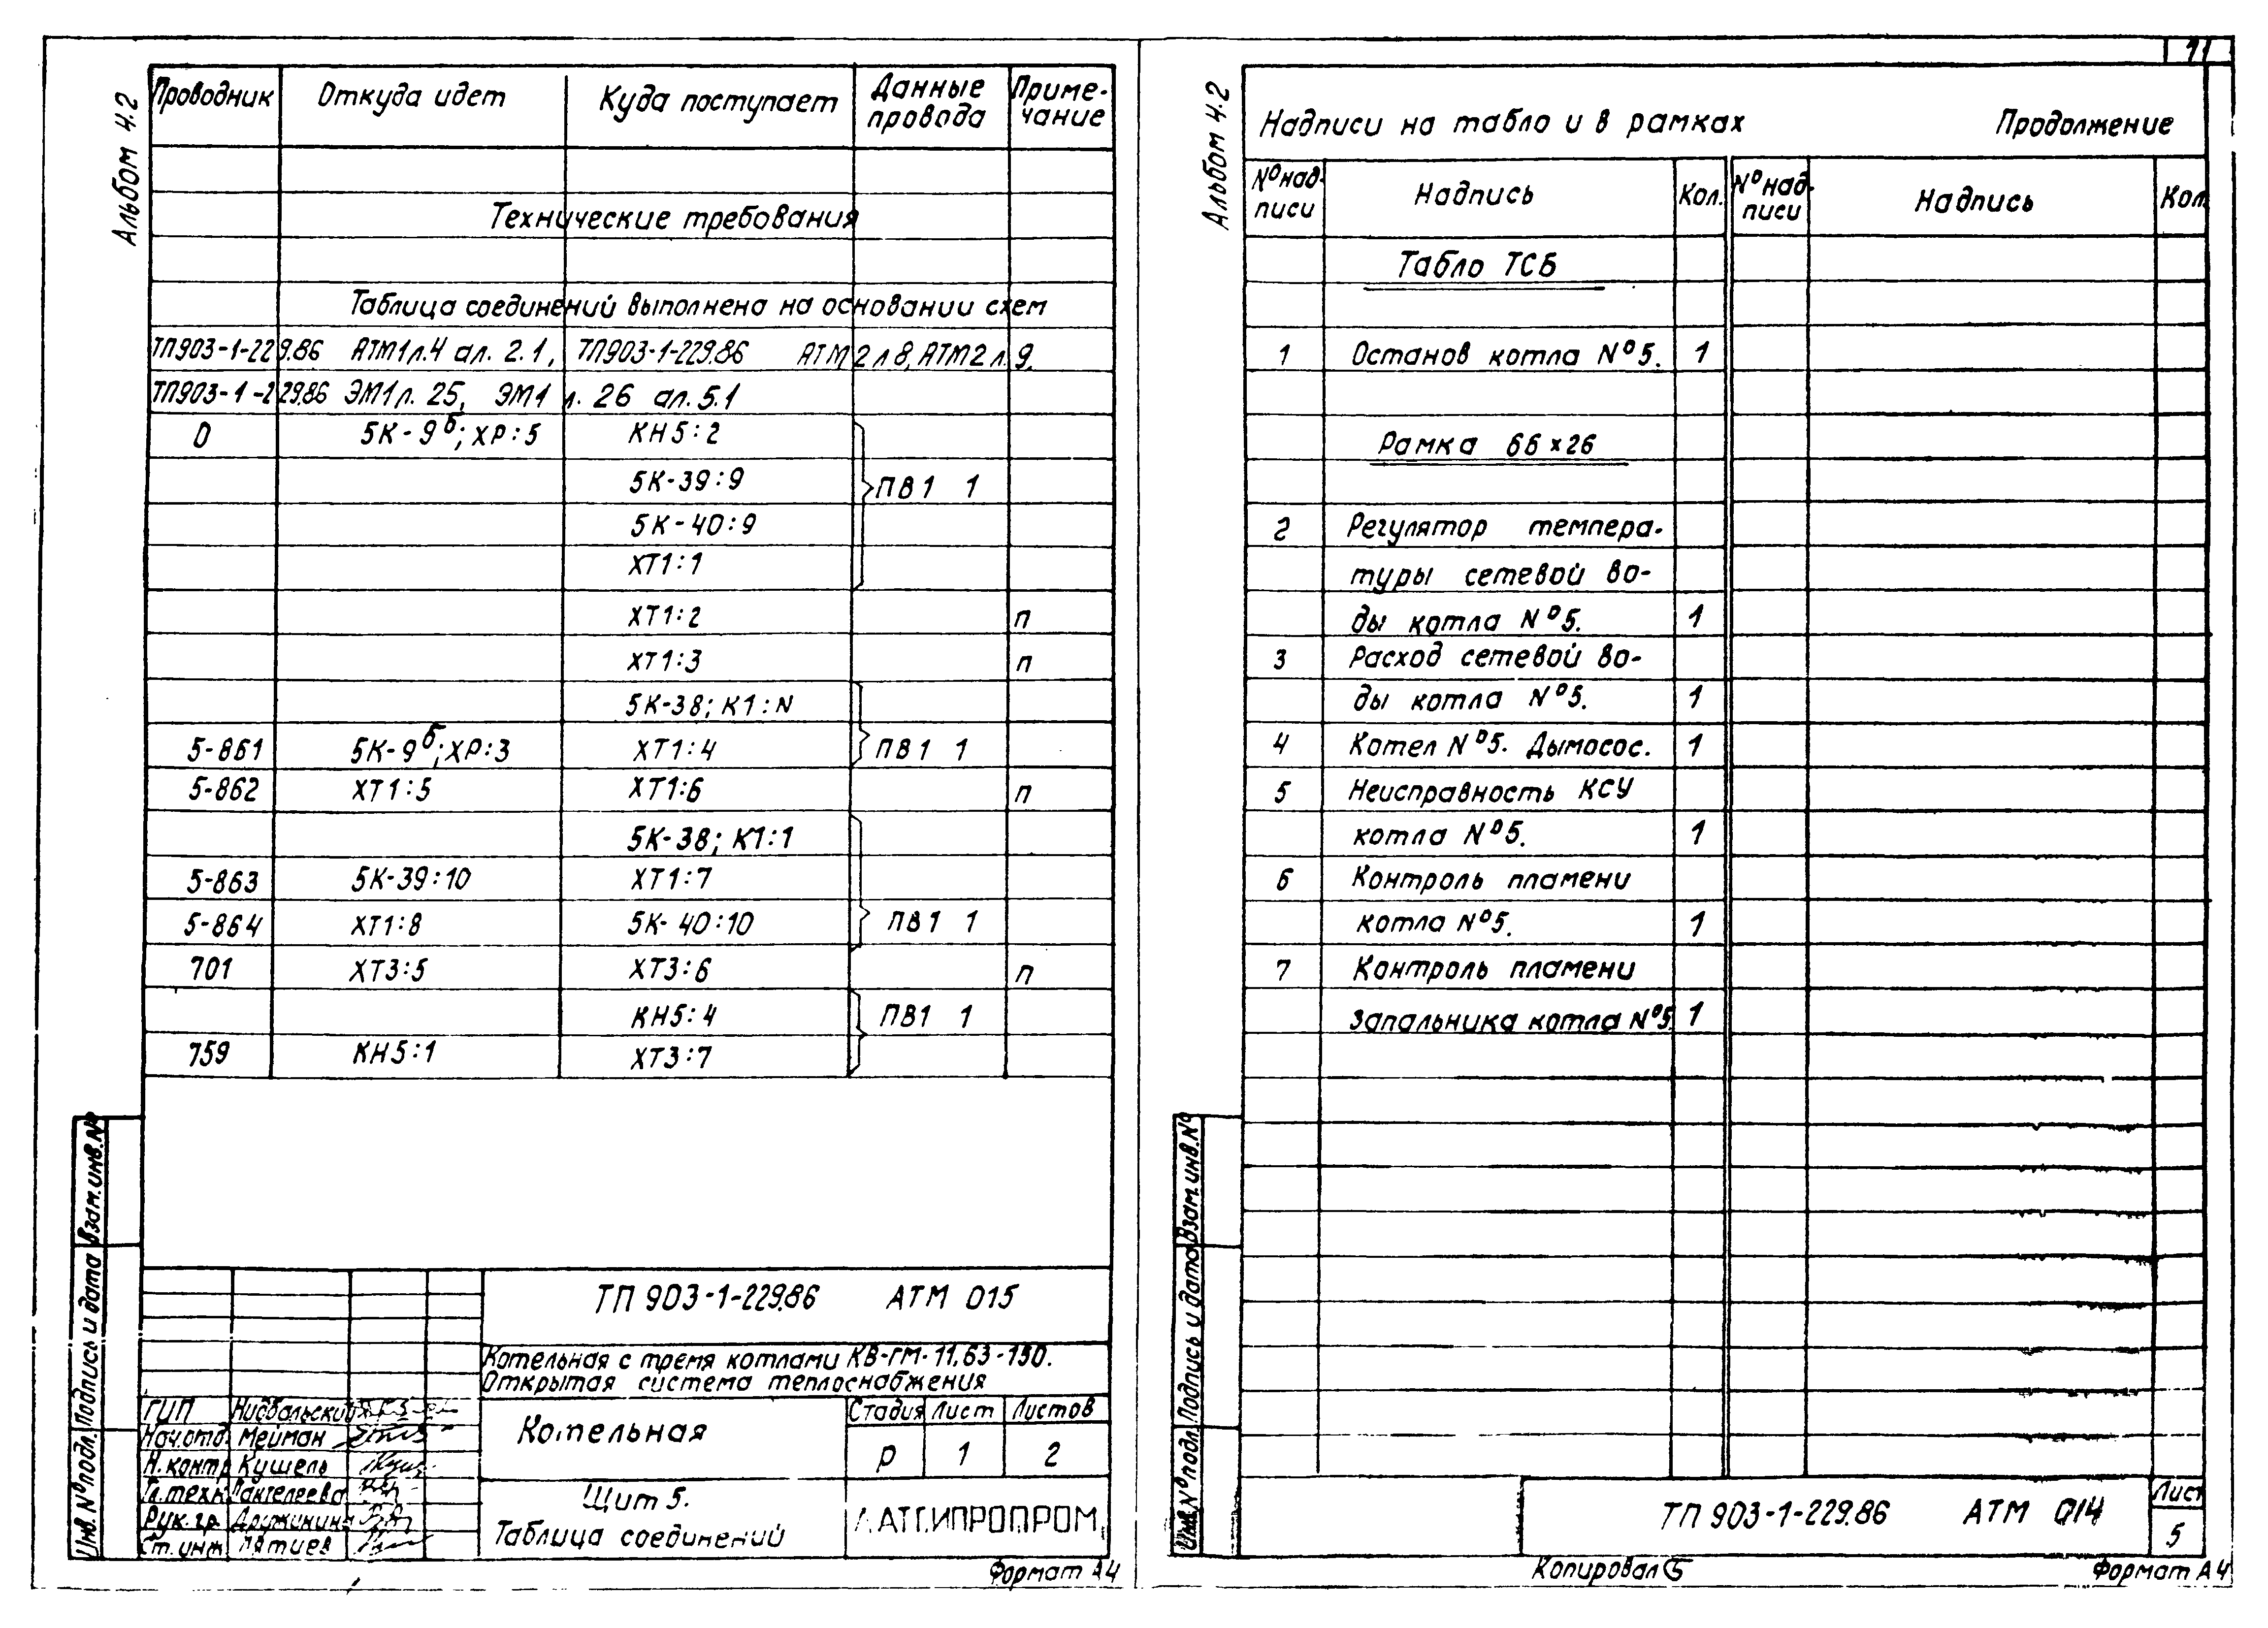 Альбом 4.2
Проводник Откуда идет Куда поступает Данные провода Приме-чание
Технические требования
Таблица соединений выполнена на основании схем
ТП903-1-229.86 АТМ1л.4 ал. 2.1, ТП903-1-229.86 АТМ2 л 8, АТМ2 л. 9.
ТП903-1-229.86 ЭМ1л. 25, ЭМ1 л. 26 ал. 5.1
0 5К-9б; ХР:5 КН5:2
5К-39:9 ПВ1 1
5К-40:9
ХТ1:1
ХТ1:2 п
ХТ1:3 п
5К-38; К1:N
5-861 5К-9б; ХР:3 ХТ1:4 ПВ1 1
5-862 ХТ1:5 ХТ1:6 п
5К-38; К1:1
5-863 5К-39:10 ХТ1:7
5-864 ХТ1:8 5К-40:10 ПВ1 1
701 ХТ3:5 ХТ3:6 п
КН5:4 ПВ1 1
759 КН5:1 ХТ3:7
Взам.инв.№
Подпись и дата
Инв.№подл.
ТП 903-1-229.86 АТМ 015
Котельная с тремя котлами КВ-ГМ-11,63-150.
Открытая система теплоснабжения
ГИП Нисбальский
Нач.отд. Мейман
Н.контр Кушель
Гл.техн Пантелеева
Рук.гр.
Ст.инж
Котельная
Стадия Лист Листов
Р 1 2
Щит 5.
Таблица соединений
ЛАТГИПРОПРОМ
Формат А4
Альбом 4.2
Надписи на табло и в рамках Продолжение
№ над-писи Надпись Кол. № над-писи Надпись Кол.
Табло ТСБ
1 Останов котла №5. 1
Рамка 66х26
2 Регулятор темпера-
туры сетевой во-
ды котла №5. 1
3 Расход сетевой во-
ды котла №5. 1
4 Котел №5. Дымосос. 1
5 Неисправность КСУ
котла №5. 1
6 Контроль пламени
котла №5. 1
7 Контроль пламени
запальника котла №5. 1
Взам.инв.№
Подпись и дата
Инв.№подл.
ТП 903-1-229.86 АТМ 014
Лист
5
Копировал
Формат А4